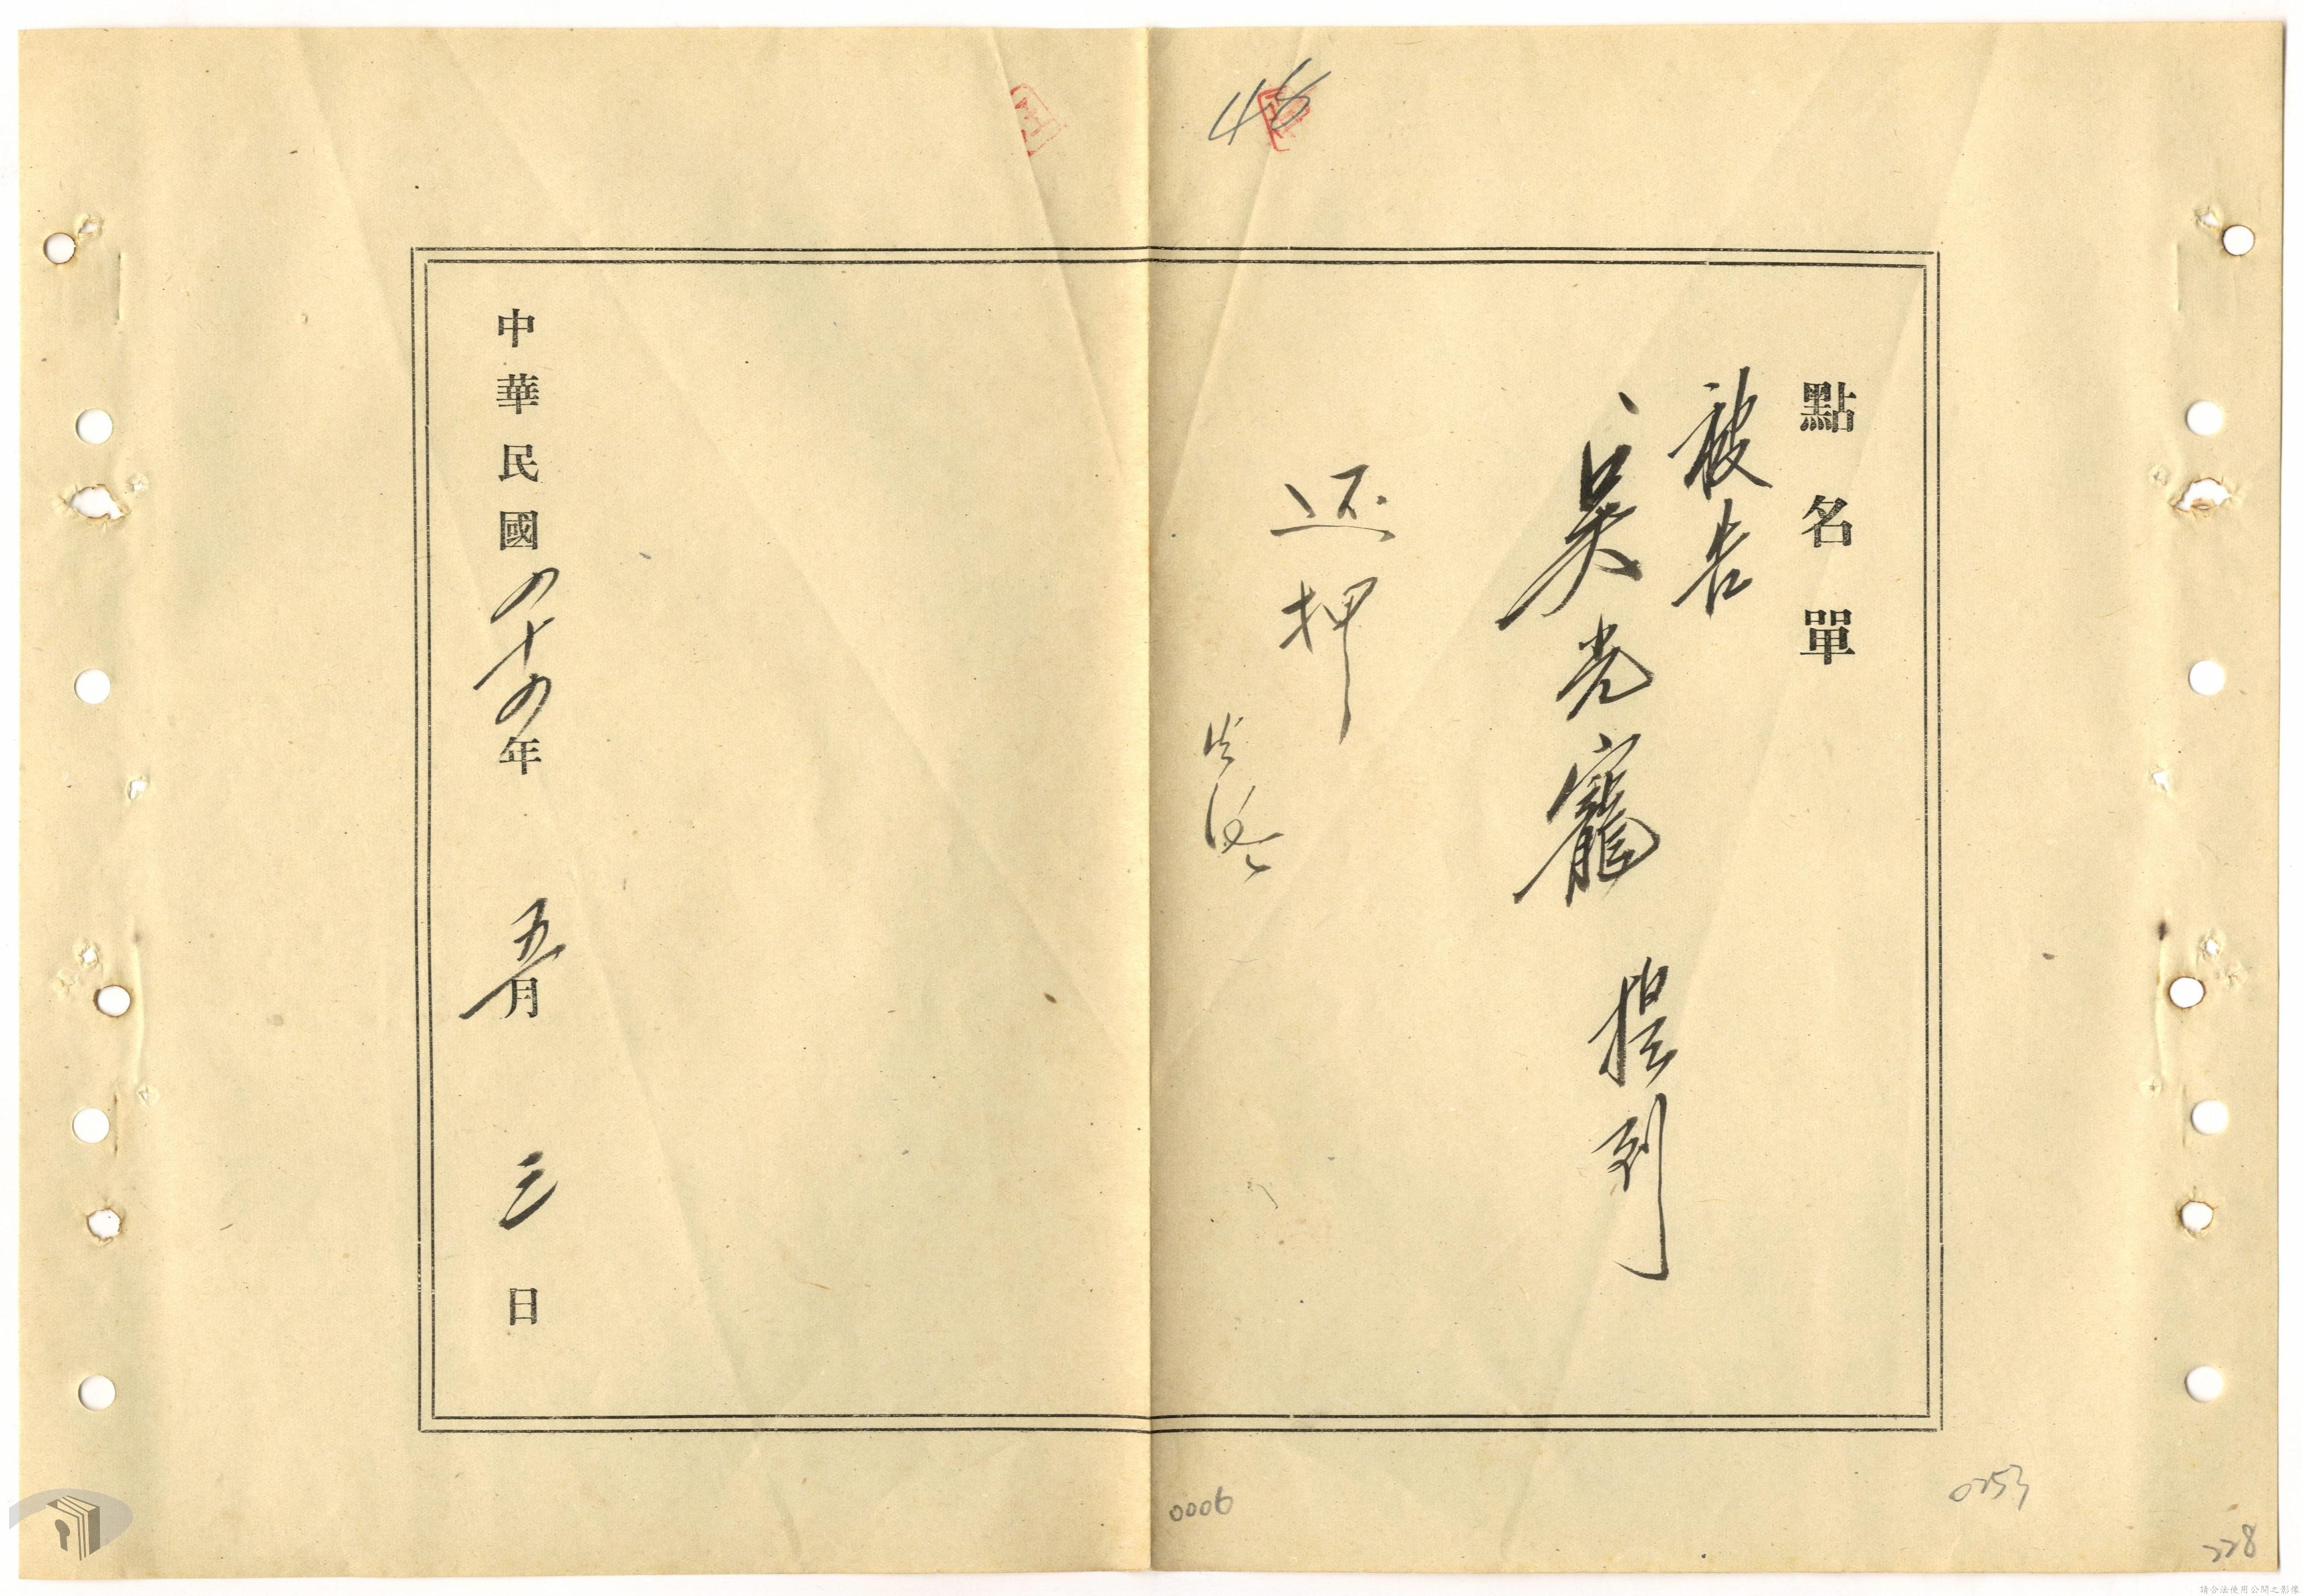 點名單
被告
吳光寵 提到
还押
中華民國四十四年 五月 三日
0006
0253
228
請合法使用公開之影像